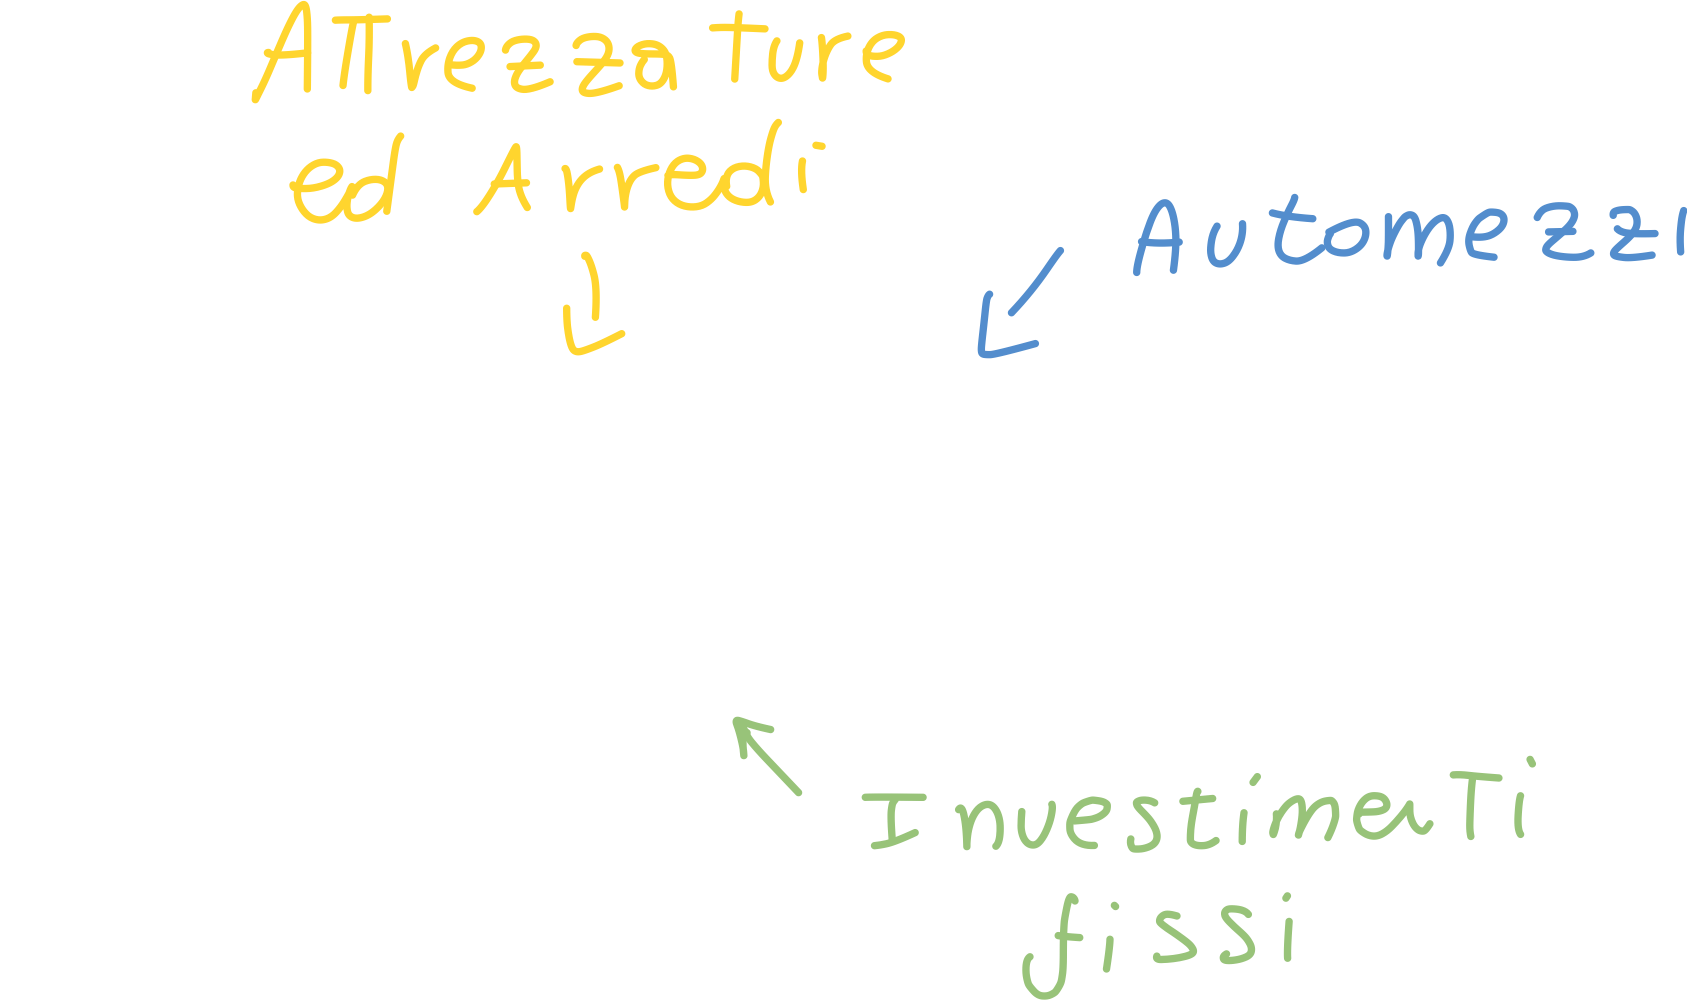 Attrezzature
ed Arredi
Automezzi
Investimenti
fissi